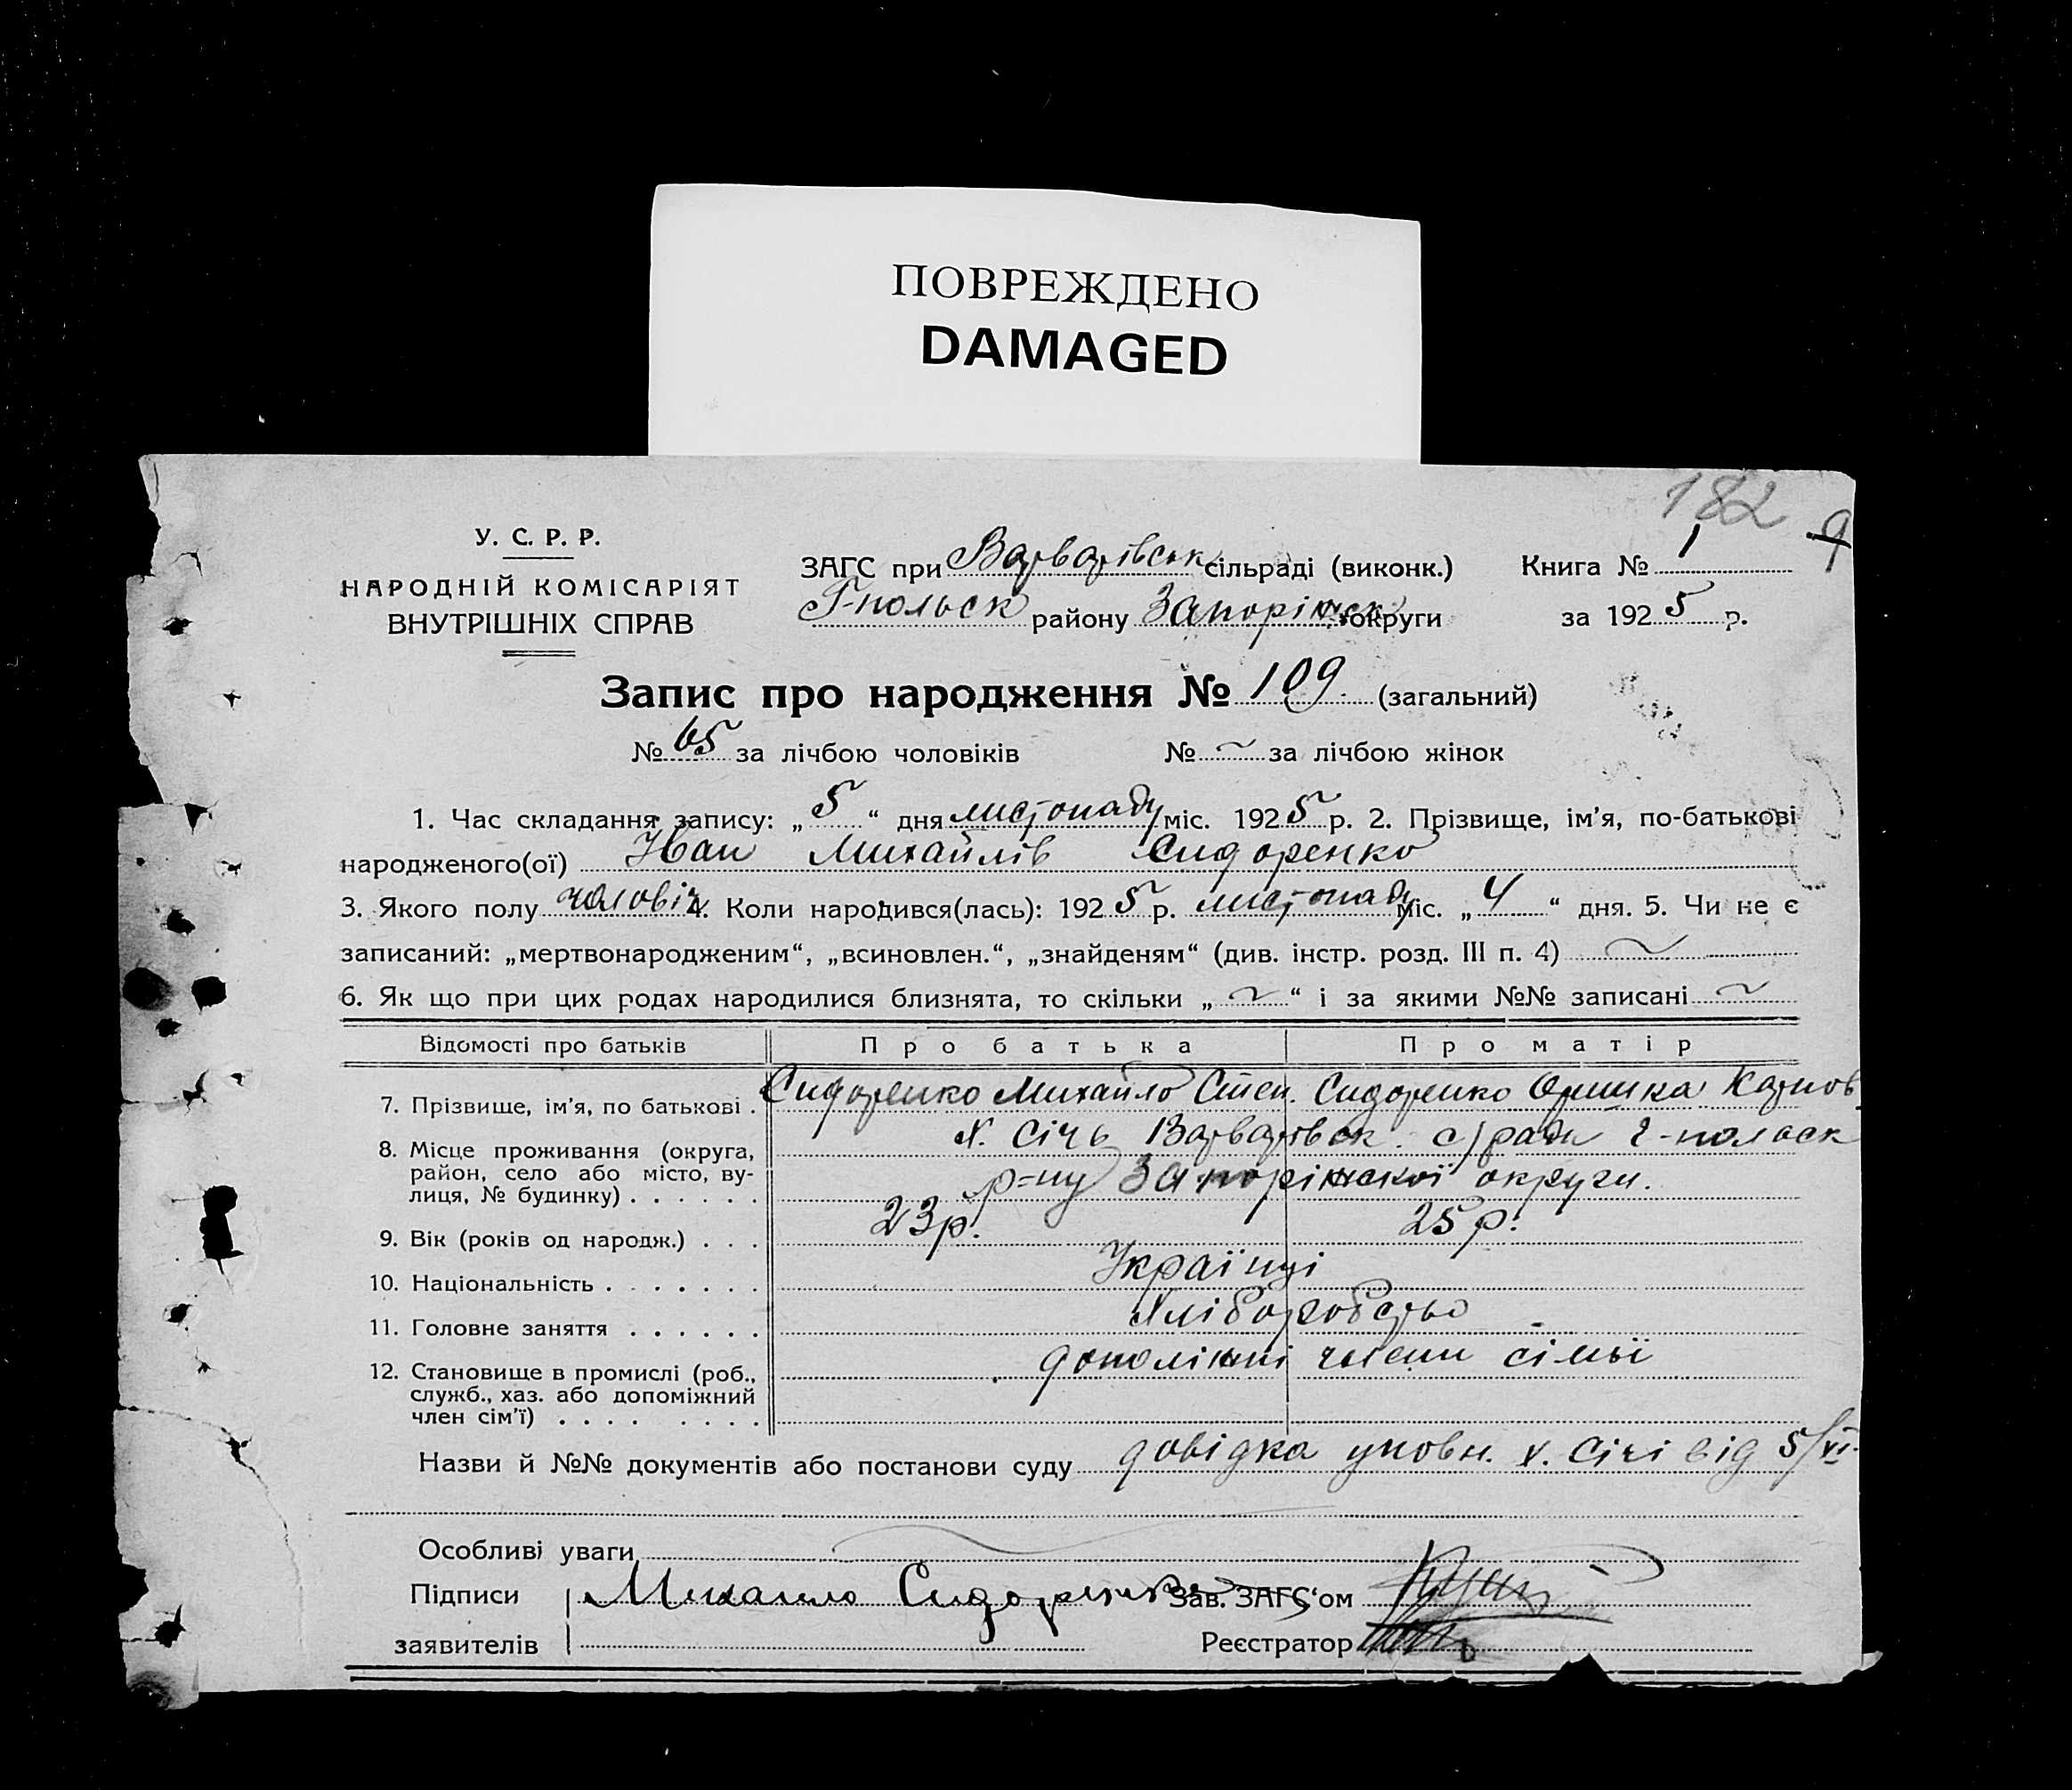 ПОВРЕЖДЕНО
DAMAGED
182
9
У. С. Р. Р.
НАРОДНІЙ КОМІСАРІЯТ
ВНУТРІШНІХ СПРАВ
ЗАГС при Варварівськ сільраді (виконк.) Книга № 1
Г-польск району Запоріжск округи за 1925 р.
Запис про народження № 109. (загальний)
№ 65 за лічбою чоловіків № ~ за лічбою жінок
1. Час складання запису: „5“ дня листопаду міс. 1925 р. 2. Прізвище, ім’я, по-батькові
народженого(ої) Іван Михайлів Сидоренко
3. Якого полу чоловіч 4. Коли народився(лась): 1925 р. листопаду міс. „4“ дня. 5. Чи не є
записаний: „мертвонародженим“, „всиновлен.“, „знайденям“ (див. інстр. розд. III п. 4) ~
6. Як що при цих родах народилися близнята, то скільки „~“ і за якими №№ записані ~
Відомості про батьків Про батька Про матір
7. Прізвище, ім’я, по батькові . Сидоренко Михайло Степ. Сидоренко Оришка Карпов
8. Місце проживання (округа, район, село або місто, вулиця, № будинку) . . . . . . х. Січь Варварівск. с/ради г-польск
р-ну Запоріжскої округи.
9. Вік (років од народж.) . . . 23 р. 25 р.
10. Національність . . . . . . . Українці
11. Головне заняття . . . . . . Хліборобство
12. Становище в промислі (роб., служб., хаз. або допоміжний член сім’ї) . . . . . . . . члени сімьї
Назви й №№ документів або постанови суду довідка уповн. х. Січі від 5/XI.
Особливі уваги
Підписи Михайло Сидоренко Зав. ЗАГС‘ом
заявителів Реєстратор